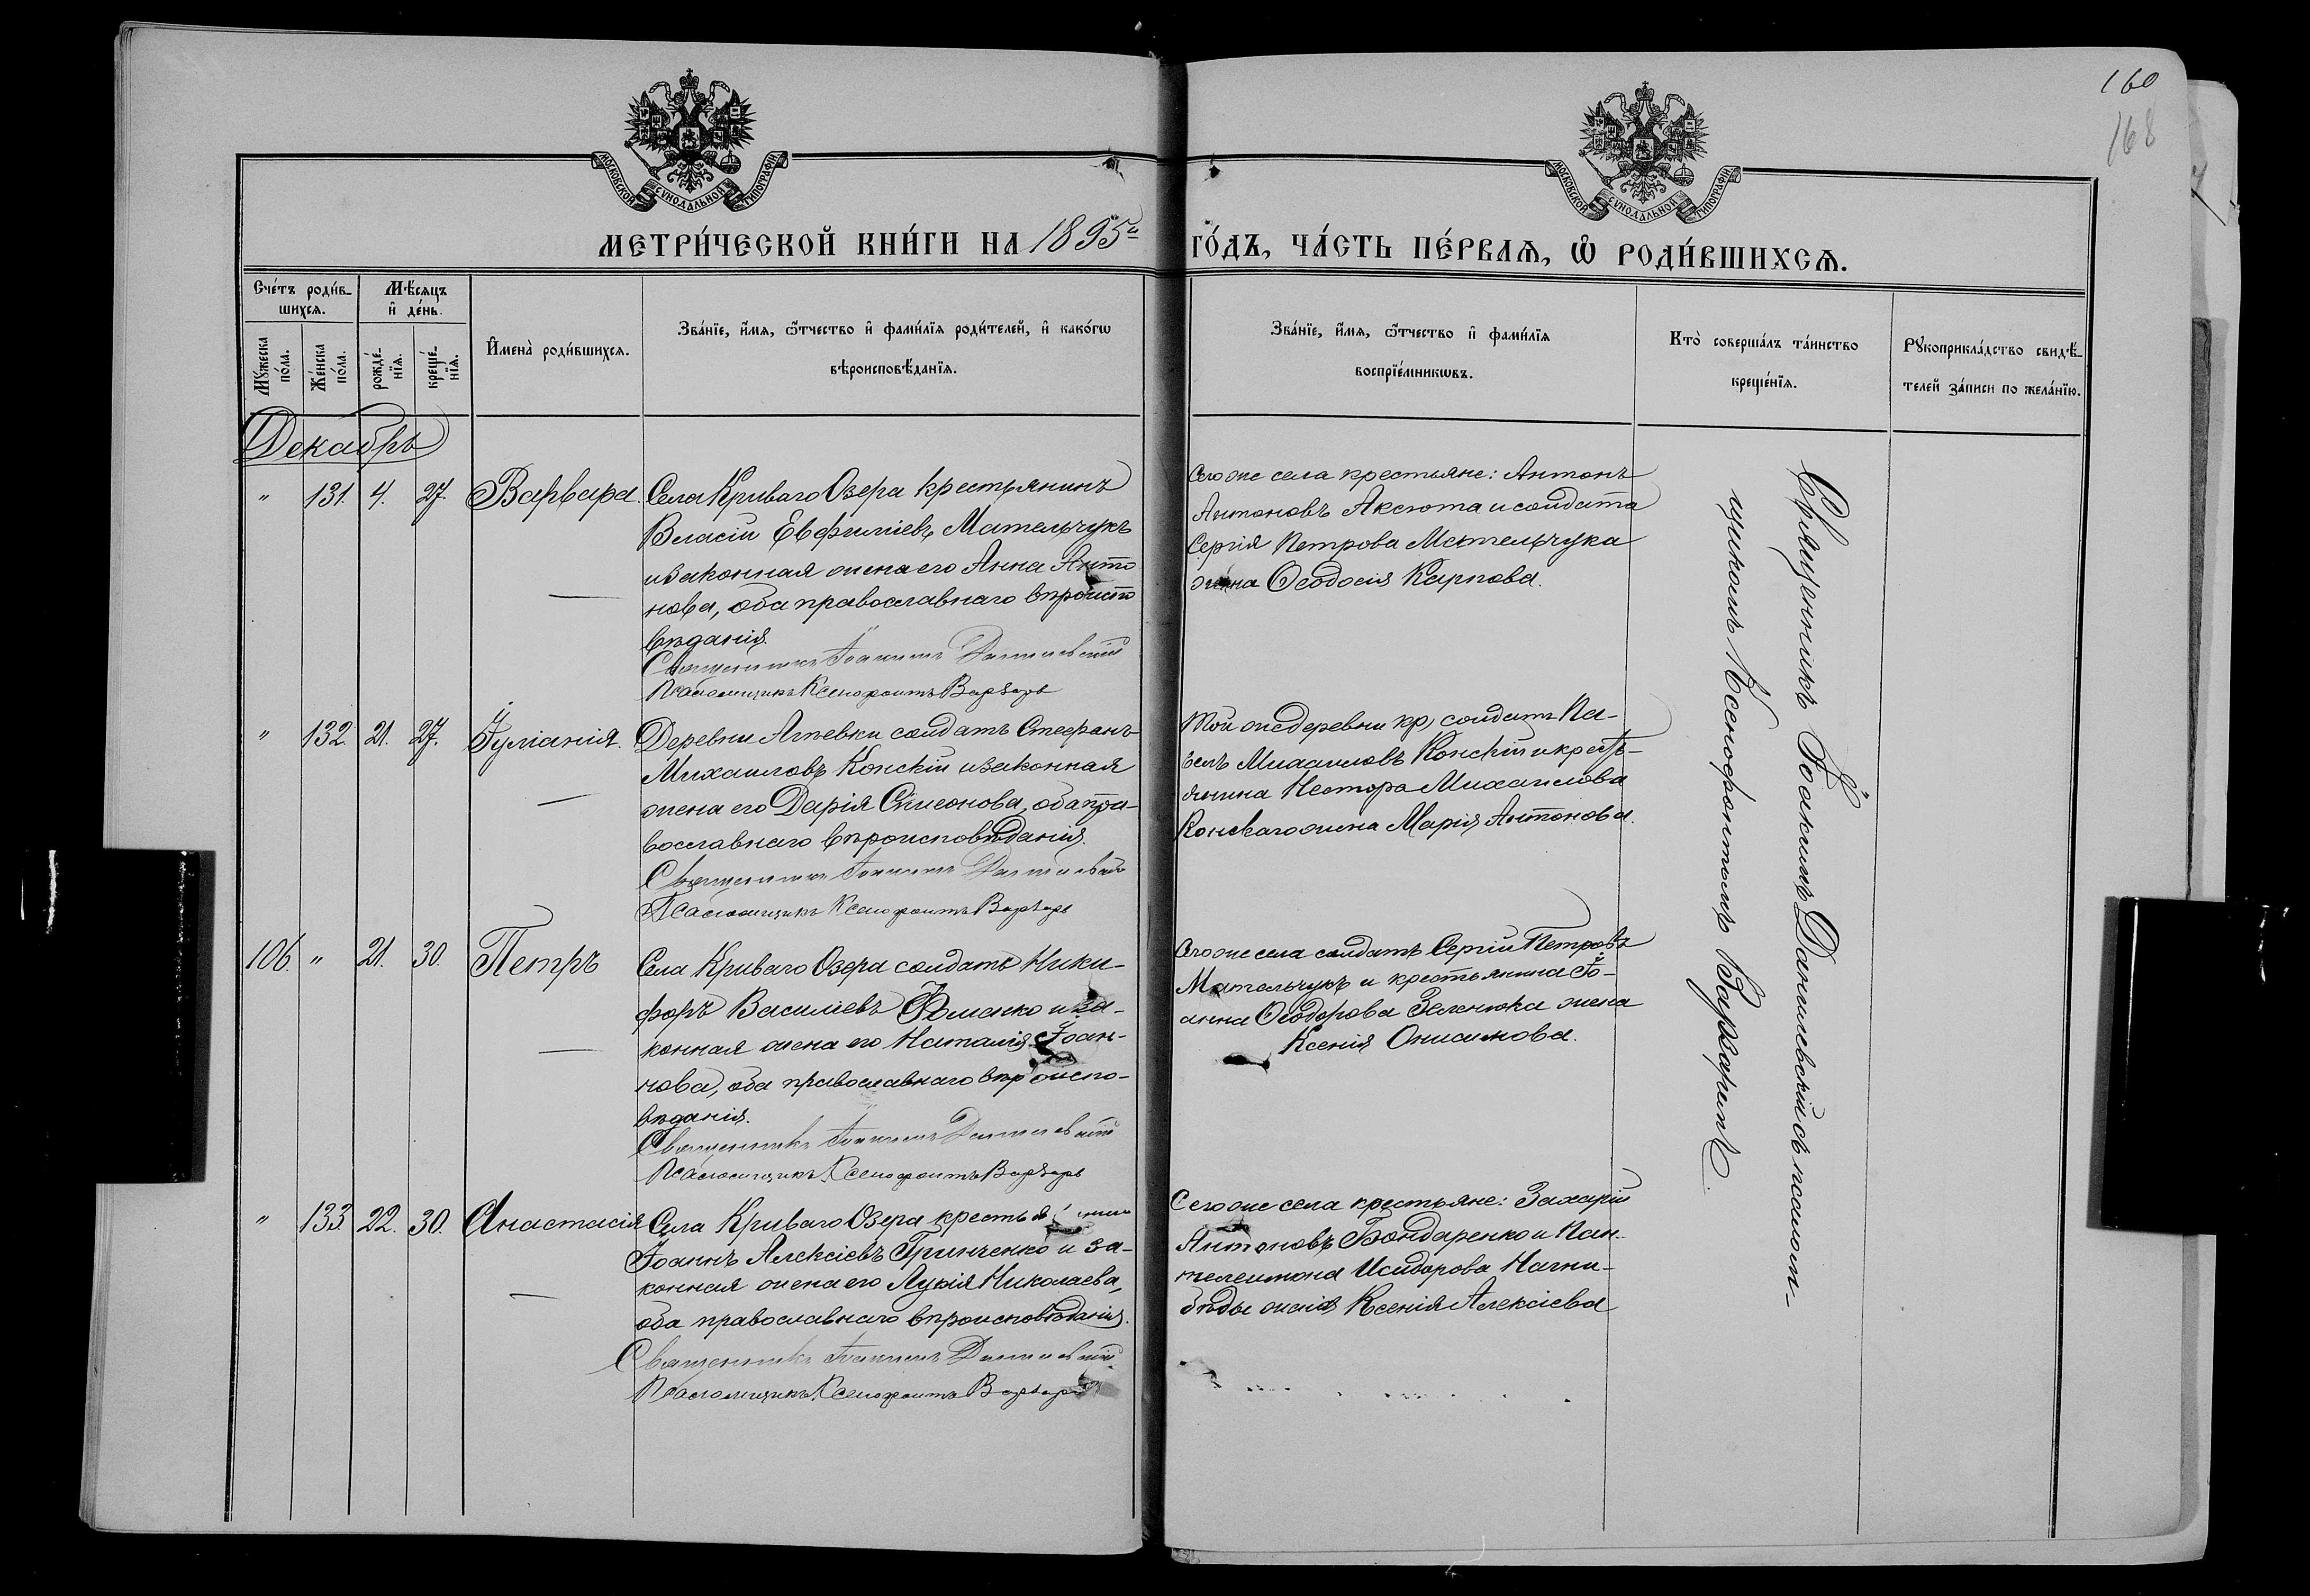 160
168
МОСКОВСКОЙ СѴНОДАЛЬНОЙ ТИПОГРАФІИ
МОСКОВСКОЙ СѴНОДАЛЬНОЙ ТИПОГРАФІИ
МЕТРИ́ЧЕСКОЙ КНИ́ГИ НА 1895й
ГО́ДЪ, ЧА́СТЬ ПЕ́РВАѦ, Ѡ҆ РОДИ́ВШИХСѦ.
Сче́тъ роди́в-
шихсѧ.
Мꙋ́жеска по́ла.
Же́нска по́ла.
Мѣ́сѧцъ
и҆ де́нь.
рожде́-
нїѧ.
креще́-
нїѧ.
И҆мена̀ роди́вшихсѧ.
Зва́нїе, и҆́мѧ, ѻ҆́тчество и҆ фами́лїѧ роди́телей, и҆ како́гѡ
вѣроисповѣ́данїѧ.
Зва́нїе, и҆́мѧ, ѻ҆́тчество и҆ фами́лїѧ
воспрїе́мникѡвъ.
Кто̀ соверша́лъ та́инство
креще́нїѧ.
Рꙋкоприкла́дство свидѣ́-
телей за́писи по жела́нїю.
Декабрь
" 131. 4. 27. Варвара.
Села Криваго Озера крестьянинъ
Власій Евфиміевъ Мательчукъ
и законная жена его Анна Анто
нова, оба православнаго вѣроиспо
вѣданія.
Священникъ Іоакимъ Данилевскій
Псаломщикъ Ксенофонтъ Варзарь
Сего же села крестьяне: Антонъ
Антоновъ Аксюта и солдата
Сергія Петрова Мательчука
жена Ѳеодосія Карпова.
" 132. 21. 27. Іуліанія.
Деревни Агѣевки солдатъ Стефанъ
Михаиловъ Конскій и законная
жена его Дарія Симонова, оба пра-
вославнаго вѣроисповѣданія.
Священникъ Іоакимъ Данилевскій
Псаломщикъ Ксенофонтъ Варзарь
Той же деревни кр, солдатъ Па-
велъ Михаиловъ Конскій и кресть-
янина Нестора Михаилова
Конскаго жена Марія Антонова.
106. " 21. 30. Петръ
Села Криваго Озера солдатъ Ники-
форъ Василіевъ Фоменко и за-
конная жена его Наталія Іоан-
нова, оба православнаго вѣроиспо-
вѣданія.
Священникъ Іоакимъ Данилевскій
Псаломщикъ Ксенофонтъ Варзарь
Сего же села солдатъ Сергій Петровъ
Мательчукъ и крестьянина Іо-
анна Ѳеодорова Зеленюка жена
Ксенія Онисимова.
" 133 22. 30. Анастасія
Села Криваго Озера крестьянинъ
Іоаннъ Алексіевъ Гринченко и за-
конная жена его Лукія Николаева,
оба православнаго вѣроисповѣданія.
Священникъ Іоакимъ Данилевскій
Псаломщикъ Ксенофонтъ Варзарь
Сего же села крестьяне: Захарій
Антоновъ Бондаренко и Пан-
телеимона Исидорова Нагни-
бѣды жена Ксенія Алексіева
Священникъ Іоакимъ Данилевскій съ псалом-
щикомъ Ксенофонтомъ Варзаремъ.